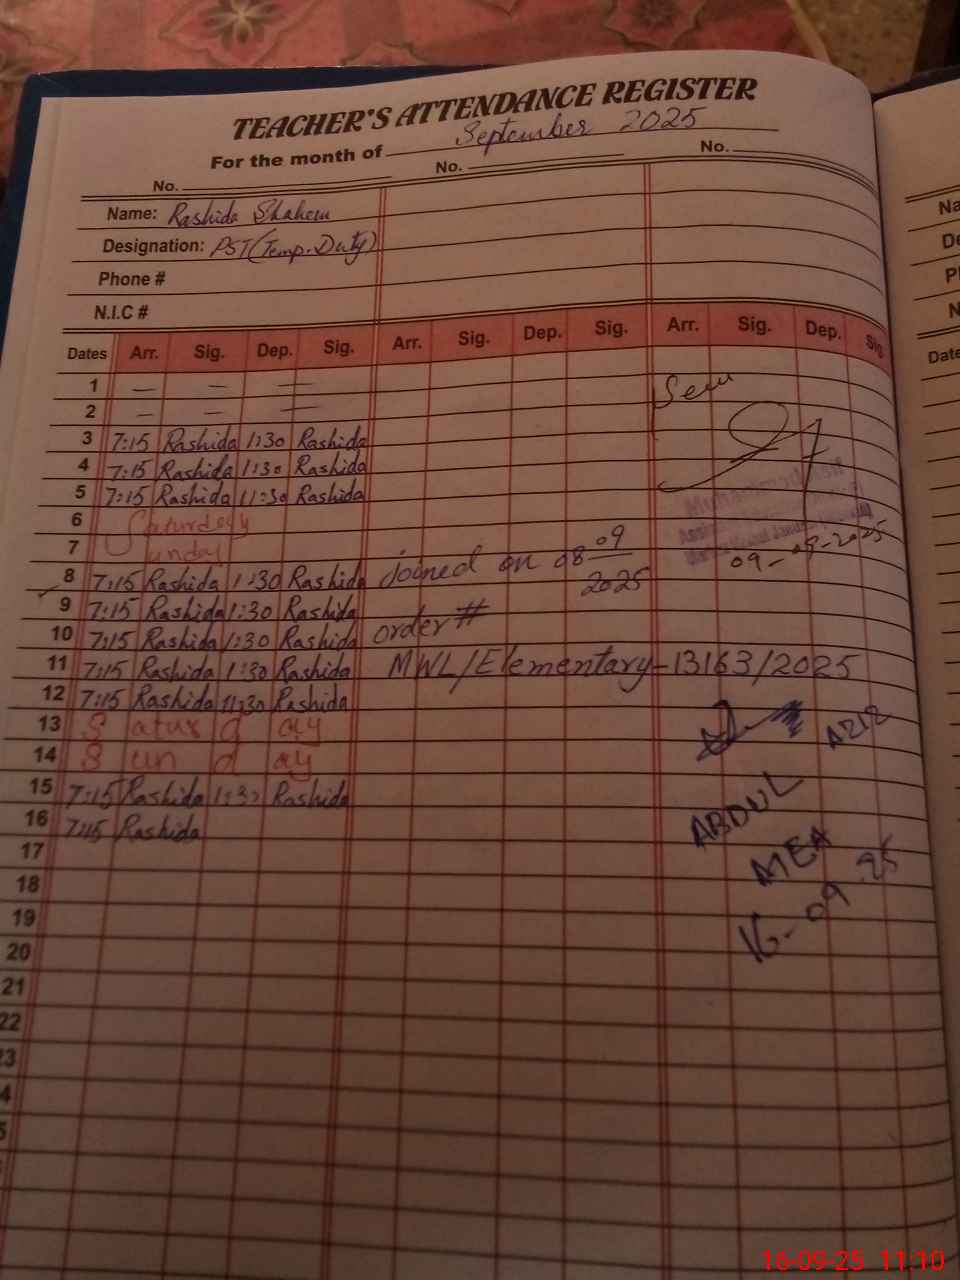 TEACHER'S ATTENDANCE REGISTER
For the month of September 2025
No. No. No.
Name: Rashida Shaheen
Designation: PST (Temp. Duty)
Phone #
N.I.C #
Dates Arr. Sig. Dep. Sig. Arr. Sig. Dep. Sig. Arr. Sig. Dep. Sig.
1 — — —
2 — — —
Seen
3 7:15 Rashida 1:30 Rashida
4 7:15 Rashida 1:30 Rashida
5 7:15 Rashida 1:30 Rashida
6 Saturday
7 Sunday
09-09-2025
8 7:15 Rashida 1:30 Rashida Joined on 08 09 2025
9 7:15 Rashida 1:30 Rashida
10 7:15 Rashida 1:30 Rashida order #
11 7:15 Rashida 1:30 Rashida MWL/Elementary-13163/2025
12 7:15 Rashida 1:30 Rashida
13 Saturday
14 Sunday
15 7:15 Rashida 1:30 Rashida
16 7:15 Rashida
ABDUL AZIZ
AEA
16-09-25
17
18
19
20
21
22
23
Na
De
Ph
N
Date
16-09-25 11:10